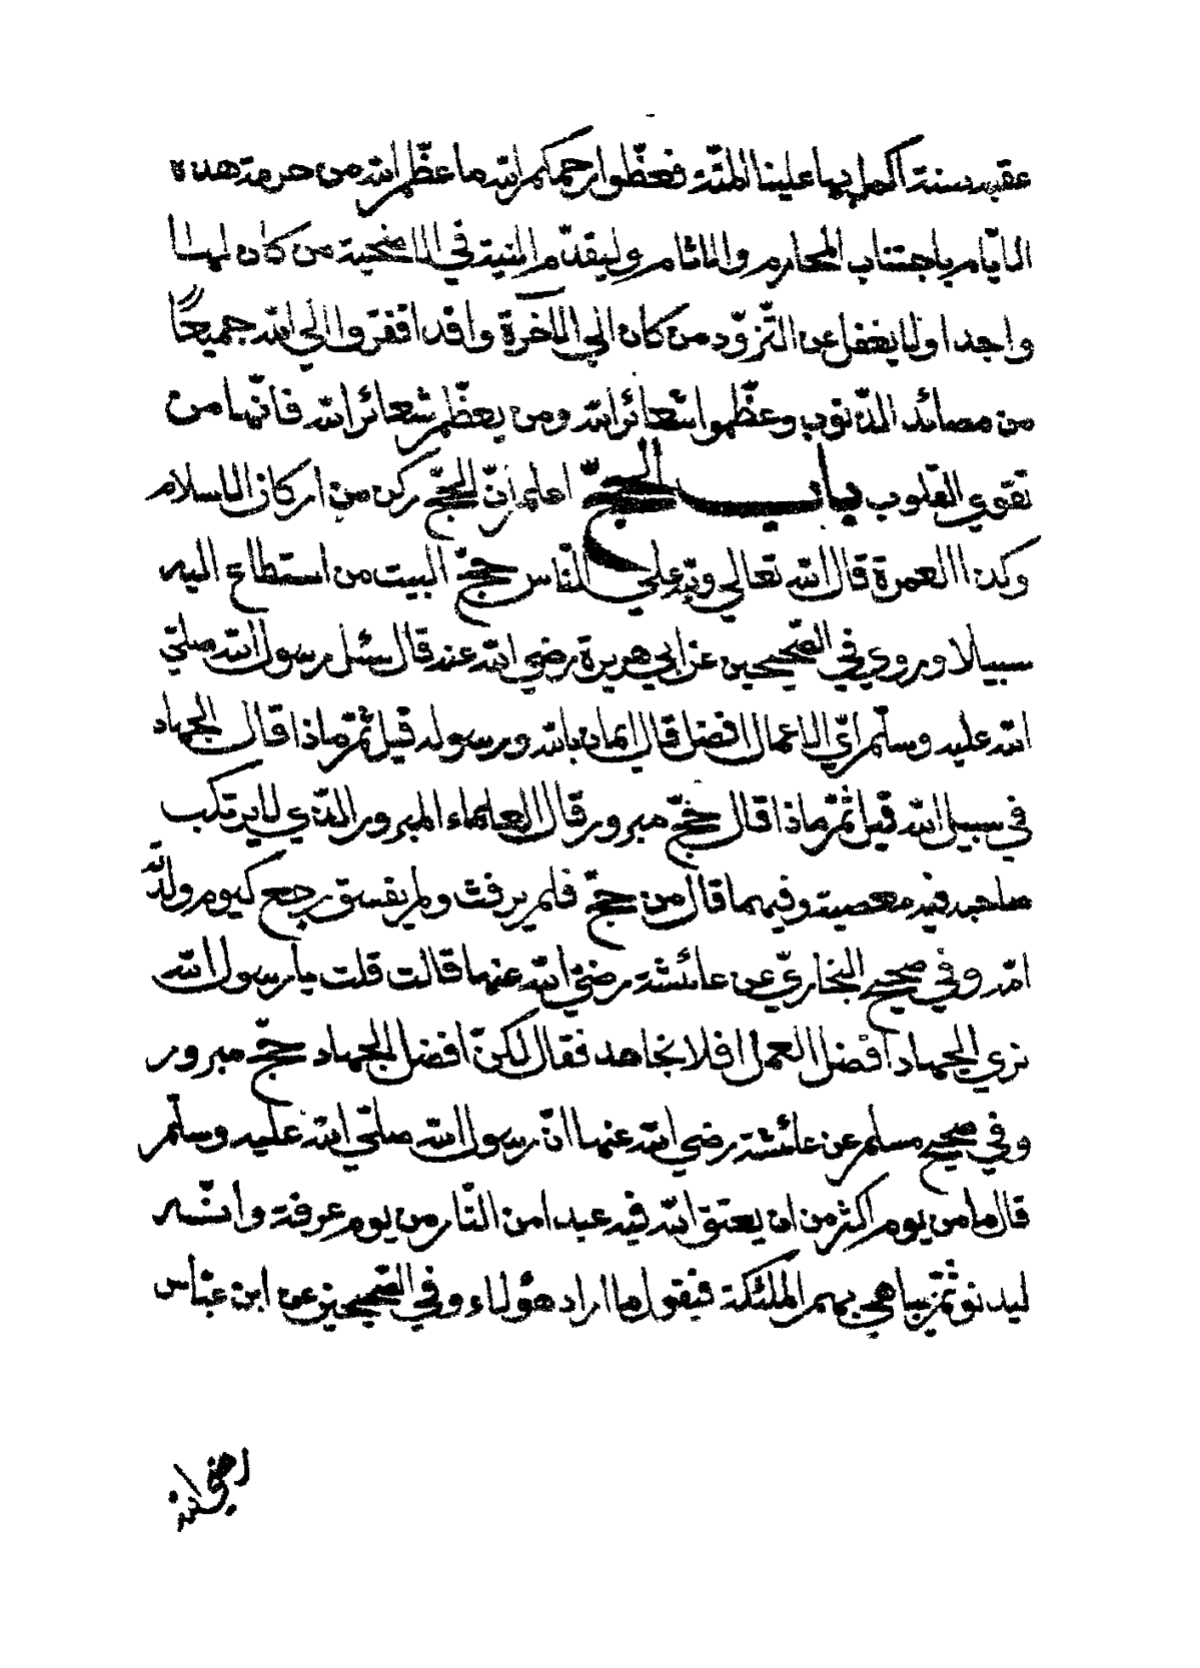 عقبه بسنة اكمل بها علينا المنّة فعظّموا رحمكم الله ما عظّم الله من حرمة هذه
الايّام باجتناب المحارم والاثام وليقدّم النية في الاضحية من كان لها
واجدا ولا يغفل عن التّزوّد من كان الي الآخرة وافدا ففرّوا الي الله جميعًا
من مصائد الذّنوب وعظّموا شعائر الله ومن يعظّم شعائر الله فانّها من
تقوي القلوب باب الحجّ اعلم انّ الحجّ ركن من اركان الاسلام
وكذا العمرة قال الله تعالي ولله علي النّاس حجّ البيت من استطاع اليه
سبيلا وروي في الصّحيحين عن ابي هريرة رضي الله عنه قال سئل رسول الله صلّي
الله عليه وسلّم ايّ الاعمال افضل قال ايمان بالله ورسوله قيل ثمّ ماذا قال الجهاد
في سبيل الله قيل ثمّ ماذا قال حجّ مبرور قال العلماء المبرور الذّي لا يرتكب
صاحبه فيه معصية وفيهما قال من حجّ فلم يرفث ولم يفسق رجع كيوم ولدته
امّه وفي صحيح البخاريّ عن عائشة رضي الله عنها قالت قلت يا رسول الله
نري الجهاد افضل العمل افلا نجاهد فقال لكنّ افضل الجهاد حجّ مبرور
وفي صحيح مسلم عن عائشة رضي الله عنها انّ رسول الله صلّي الله عليه وسلّم
قال ما من يوم اكثر من ان يعتق الله فيه عبدا من النّار من يوم عرفة وانّه
ليدنو ثمّ يباهي بهم الملئكة فيقول ما اراد هؤلاء وفي الصّحيحين عن ابن عبّاس
رضي الله